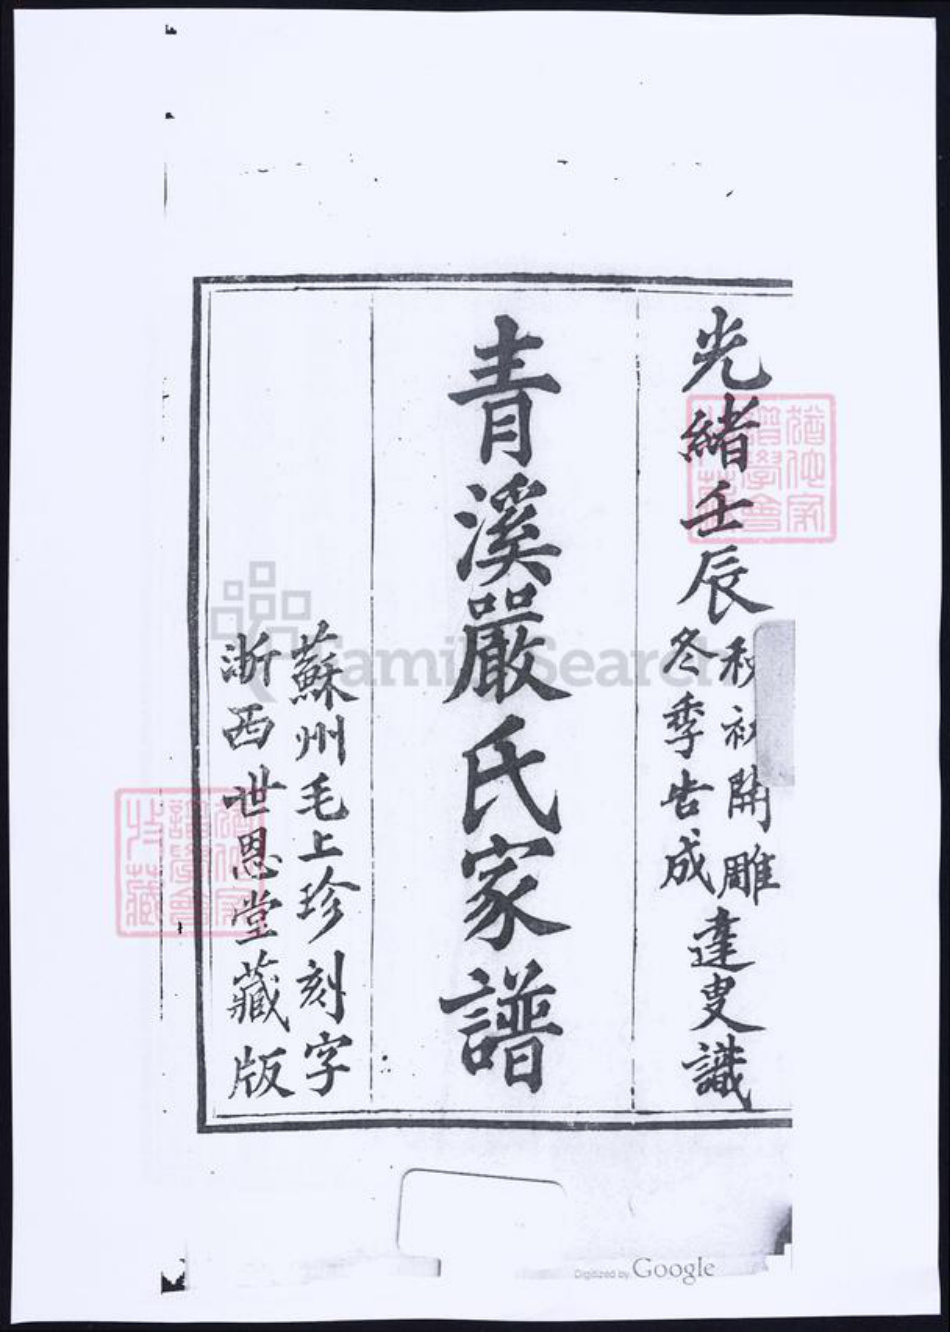 光緒壬辰
秋初開雕
冬季告成
達叟識
青溪嚴氏家譜
蘇州毛上珍刻字
浙西世恩堂藏版
FamilySearch
Digitized by Google